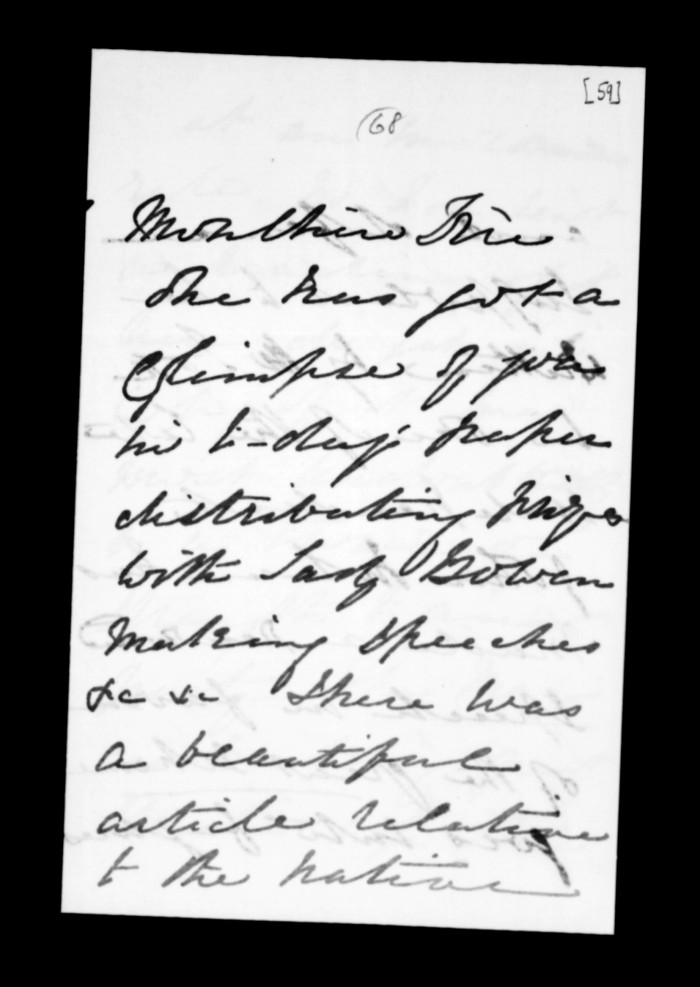 [59]
68
time
She has got a
Glimpse of you
in to-day's paper
distributing prizes
with Lady Bowen
making speeches
&c &c There was
a beautiful
article relative
to the native